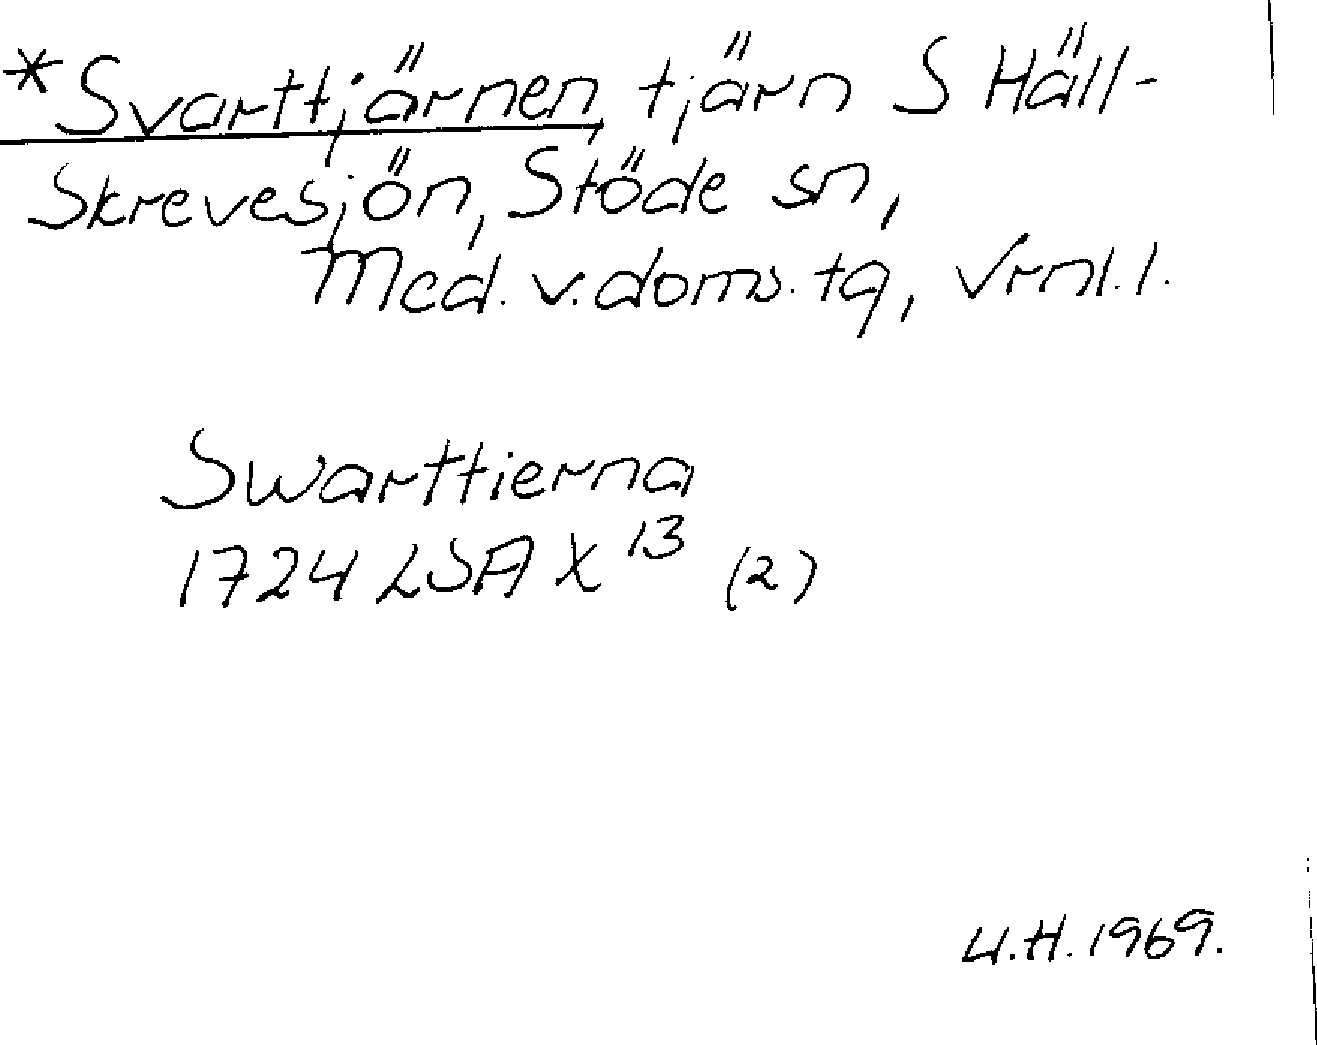 *Svarttjärnen, tjärn S Häll-
skrevesjön, Stöde sn,
Med. v. doms. tg, Vrnl. l.
Swarttierna
1724 LSA X 13 (2)
U.H. 1969.